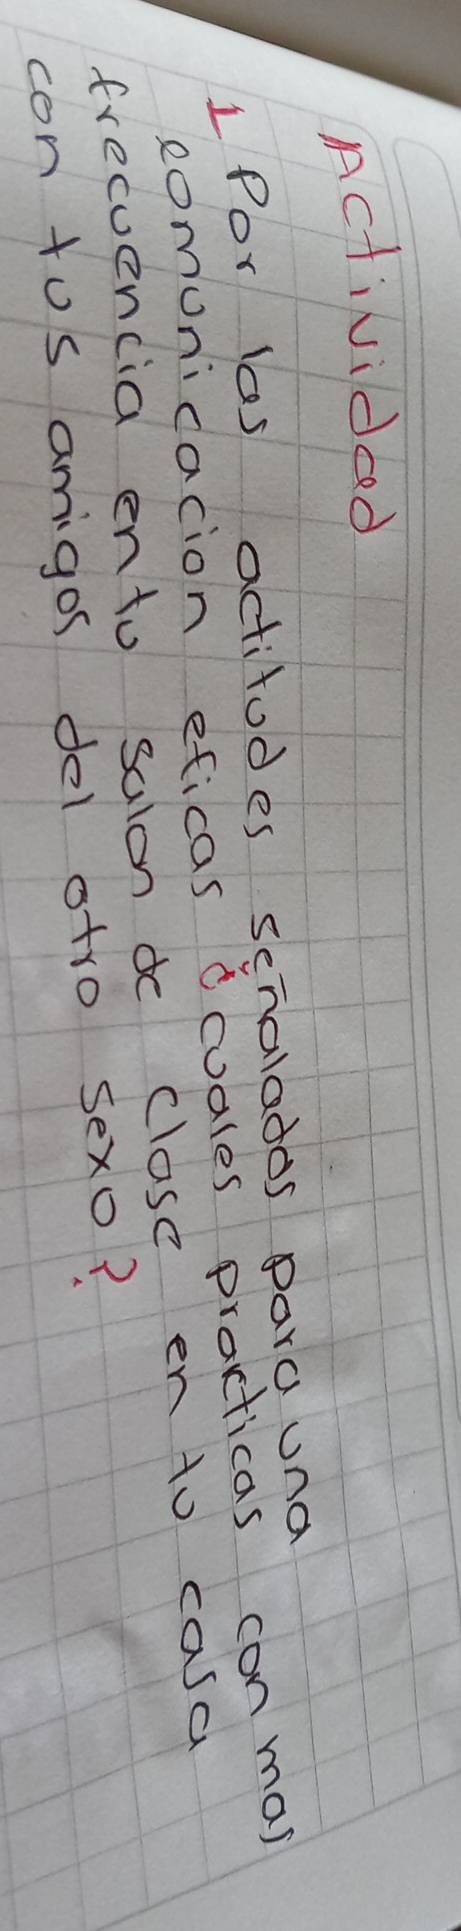 Actividad
1 Por las actitudes señaladas para una
comunicacion eficas ¿cuales practicas con mas
frecuencia entu salon de clase en tu casa
con tus amigos del otro sexo?